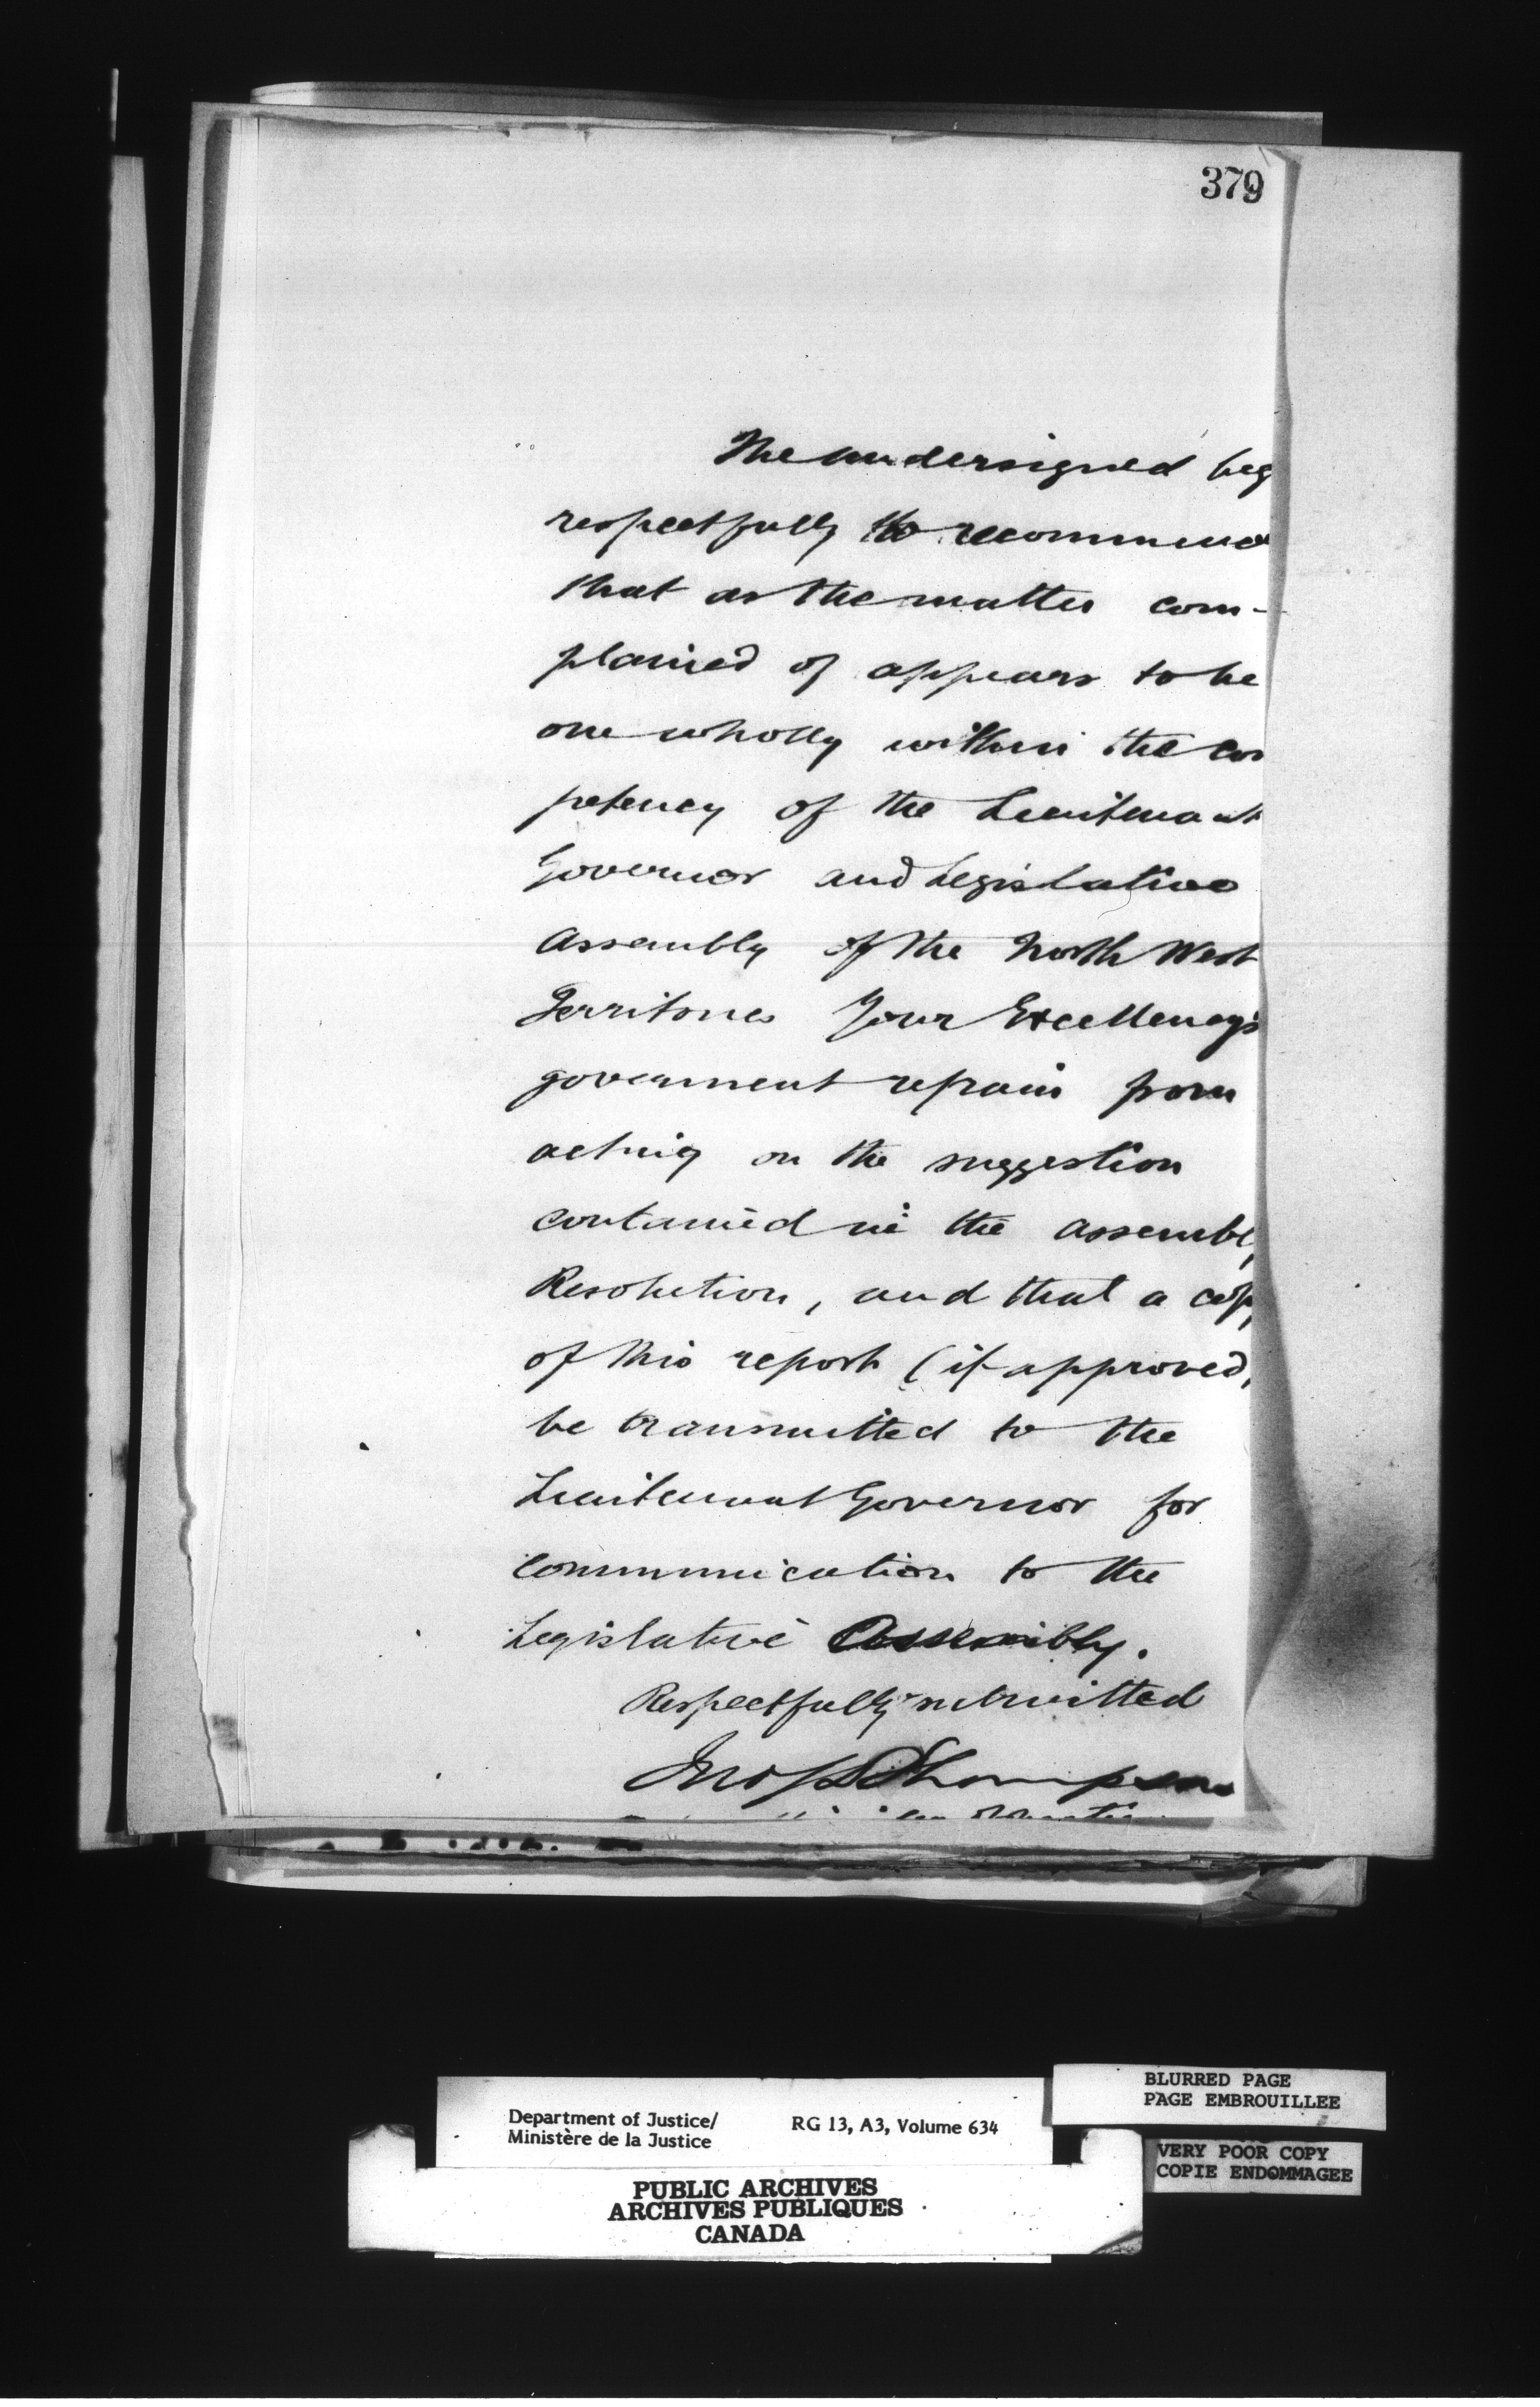 379
The undersigned beg
respectfully to recommend
that as the matter com-
plained of appears to be
one wholly within the com
petency of the Lieutenant
Governor and Legislative
Assembly of the North West
Territories Your Excellency's
government refrain from
acting on the suggestion
contained in the Assembly
Resolution, and that a copy
of this report (if approved)
be transmitted to the
Lieutenant Governor for
communication to the
Legislative Assembly.
Respectfully submitted
Jno S D Thompson
Department of Justice/
Ministère de la Justice
RG 13, A3, Volume 634
BLURRED PAGE
PAGE EMBROUILLEE
VERY POOR COPY
COPIE ENDOMMAGEE
PUBLIC ARCHIVES
ARCHIVES PUBLIQUES
CANADA